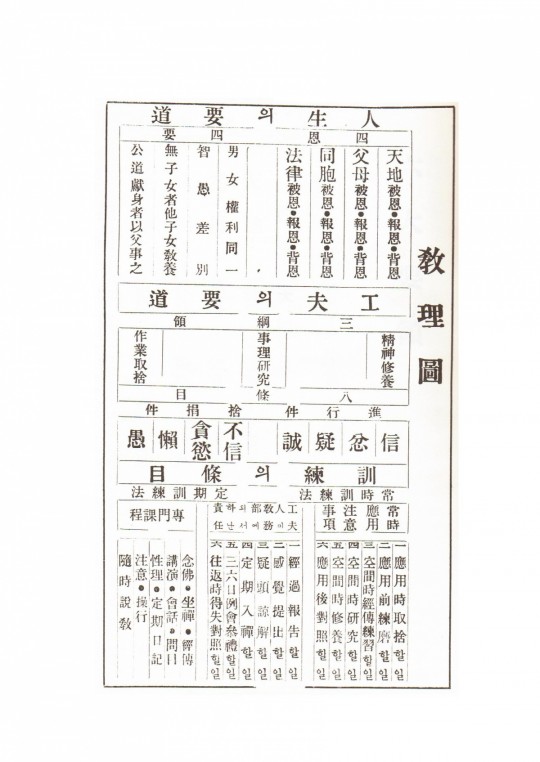 敎理圖
人生의要道
四恩
天地被恩●報恩●背恩
父母被恩●報恩●背恩
同胞被恩●報恩●背恩
法律被恩●報恩●背恩
四要
男女權利同一
智愚差別
無子女者他子女敎養
公道獻身者以父事之
工夫의要道
三綱領
精神修養
事理硏究
作業取捨
八條目
進行件
捨捐件
信
忿
疑
誠
不信
貪慾
懶
愚
訓練의條目
常時訓練法
定期訓練法
常時應用注意事項
一 應用時取捨할일
二 應用前練磨할일
三 空間時經傳練習할일
四 空間時硏究할일
五 空間時修養할일
六 應用後對照할일
工夫人이敎務部에와서하난責任
一 經過報告할일
二 感覺提出할일
三 疑頭諒解할일
四 定期入禪할일
五 三六日例會參禮할일
六 往返時得失對照할일
專門課程
念佛●坐禪●經傳
講演●會話●問目
性理●定期日記
注意●操行
隨時說敎